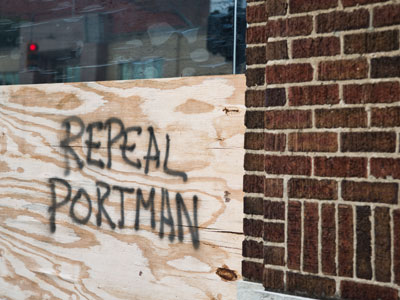 REPEAL
PORTMAN